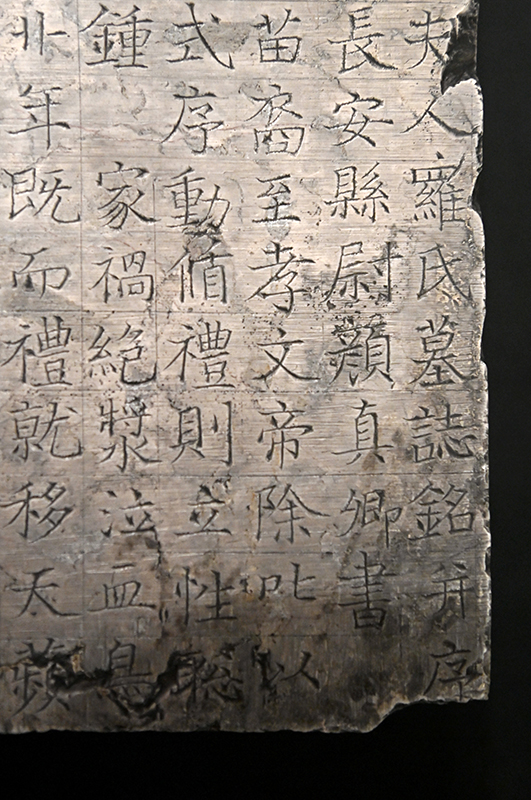 夫人羅氏墓誌銘并序
長安縣尉顏真卿書
苗裔至孝文帝除叱以
式序動循禮則立性聰
鍾家禍絕漿泣血鳥
年既而禮就移天蘋